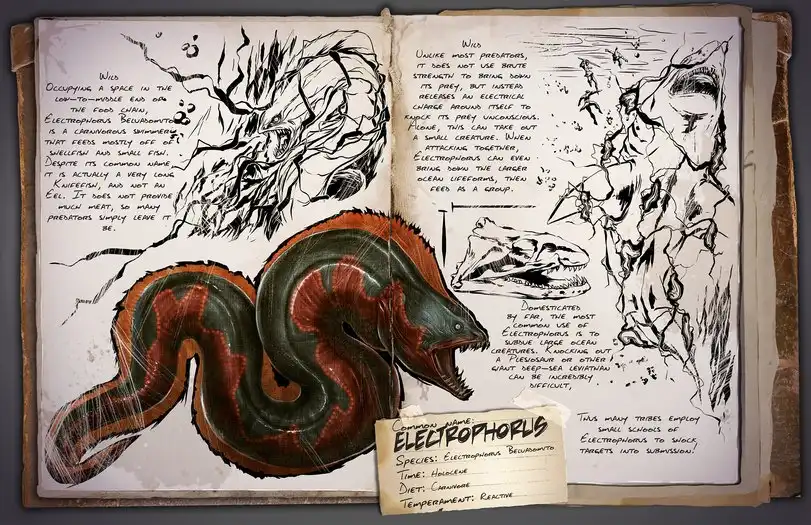 Wild
Occupying a space in the
low-to-middle end of
the food chain,
Electrophorus Beluadomito
is a carnivorous swimmer
that feeds mostly off of
shellfish and small fish.
Despite its common name,
it is actually a very long
Knifefish, and not an
Eel. It does not provide
much meat, so many
predators simply leave it
be.
Wild
Unlike most predators,
it does not use brute
strength to bring down
its prey, but instead
releases an electrical
charge around itself to
knock its prey unconscious.
Alone, this can take out
a small creature. When
attacking together,
Electrophorus can even
bring down the larger
ocean lifeforms, then
feed as a group.
Domesticated
By far, the most
common use of
Electrophorus is to
subdue large ocean
creatures. Knocking out
a Plesiosaur or other
giant deep-sea leviathan
can be incredibly
difficult,
Thus many tribes employ
small schools of
Electrophorus to shock
targets into submission.
Common Name:
Electrophorus
Species: Electrophorus Beluadomito
Time: Holocene
Diet: Carnivore
Temperament: Reactive